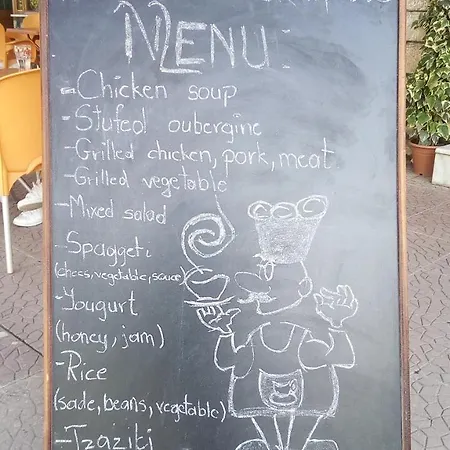 MENU
-Chicken soup
-Stufed oubergine
-Grilled chicken, pork, meat.
-Grilled vegetable
-Mixed salad
-Spaggeti
(chees, vegetable, sauce)
-Yougurt
(honey, jam)
-Rice
(sade, beans, vegetable)
-Tzaziti